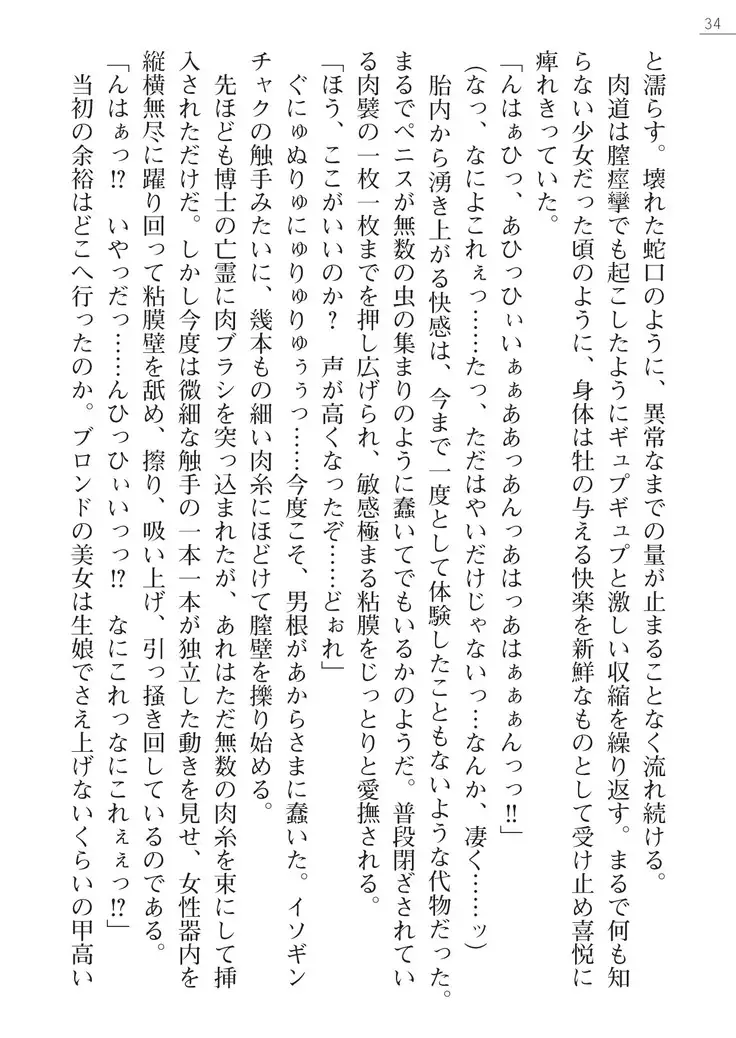 34
と濡らす。壊れた蛇口のように、異常なまでの量が止まることなく流れ続ける。
肉道は膣痙攣でも起こしたようにギュプギュプと激しい収縮を繰り返す。まるで何も知
らない少女だった頃のように、身体は牡の与える快楽を新鮮なものとして受け止め喜悦に
痺れきっていた。
「んはぁひっ、あひっひぃいぁぁああっあんっあはっあはぁぁぁんっっ!!」
(なっ、なによこれぇっ……たっ、ただはやいだけじゃないっ…なんか、凄く……ッ)
胎内から湧き上がる快感は、今まで一度として体験したこともないような代物だった。
まるでペニスが無数の虫の集まりのように蠢いてでもいるかのようだ。普段閉ざされてい
る肉襞の一枚一枚までを押し広げられ、敏感極まる粘膜をじっとりと愛撫される。
「ほう、ここがいいのか？　声が高くなったぞ……どぉれ」
ぐにゅぬりゅにゅりゅりゅぅぅっ……今度こそ、男根があからさまに蠢いた。イソギン
チャクの触手みたいに、幾本もの細い肉糸にほどけて膣壁を擽り始める。
先ほども博士の亡霊に肉ブラシを突っ込まれたが、あれはただ無数の肉糸を束にして挿
入されただけだ。しかし今度は微細な触手の一本一本が独立した動きを見せ、女性器内を
縦横無尽に躍り回って粘膜壁を舐め、擦り、吸い上げ、引っ掻き回しているのである。
「んはぁっ!?　いやっだっ……んひっひぃいっっ!?　なにこれっなにこれぇぇっ!?」
当初の余裕はどこへ行ったのか。ブロンドの美女は生娘でさえ上げないくらいの甲高い